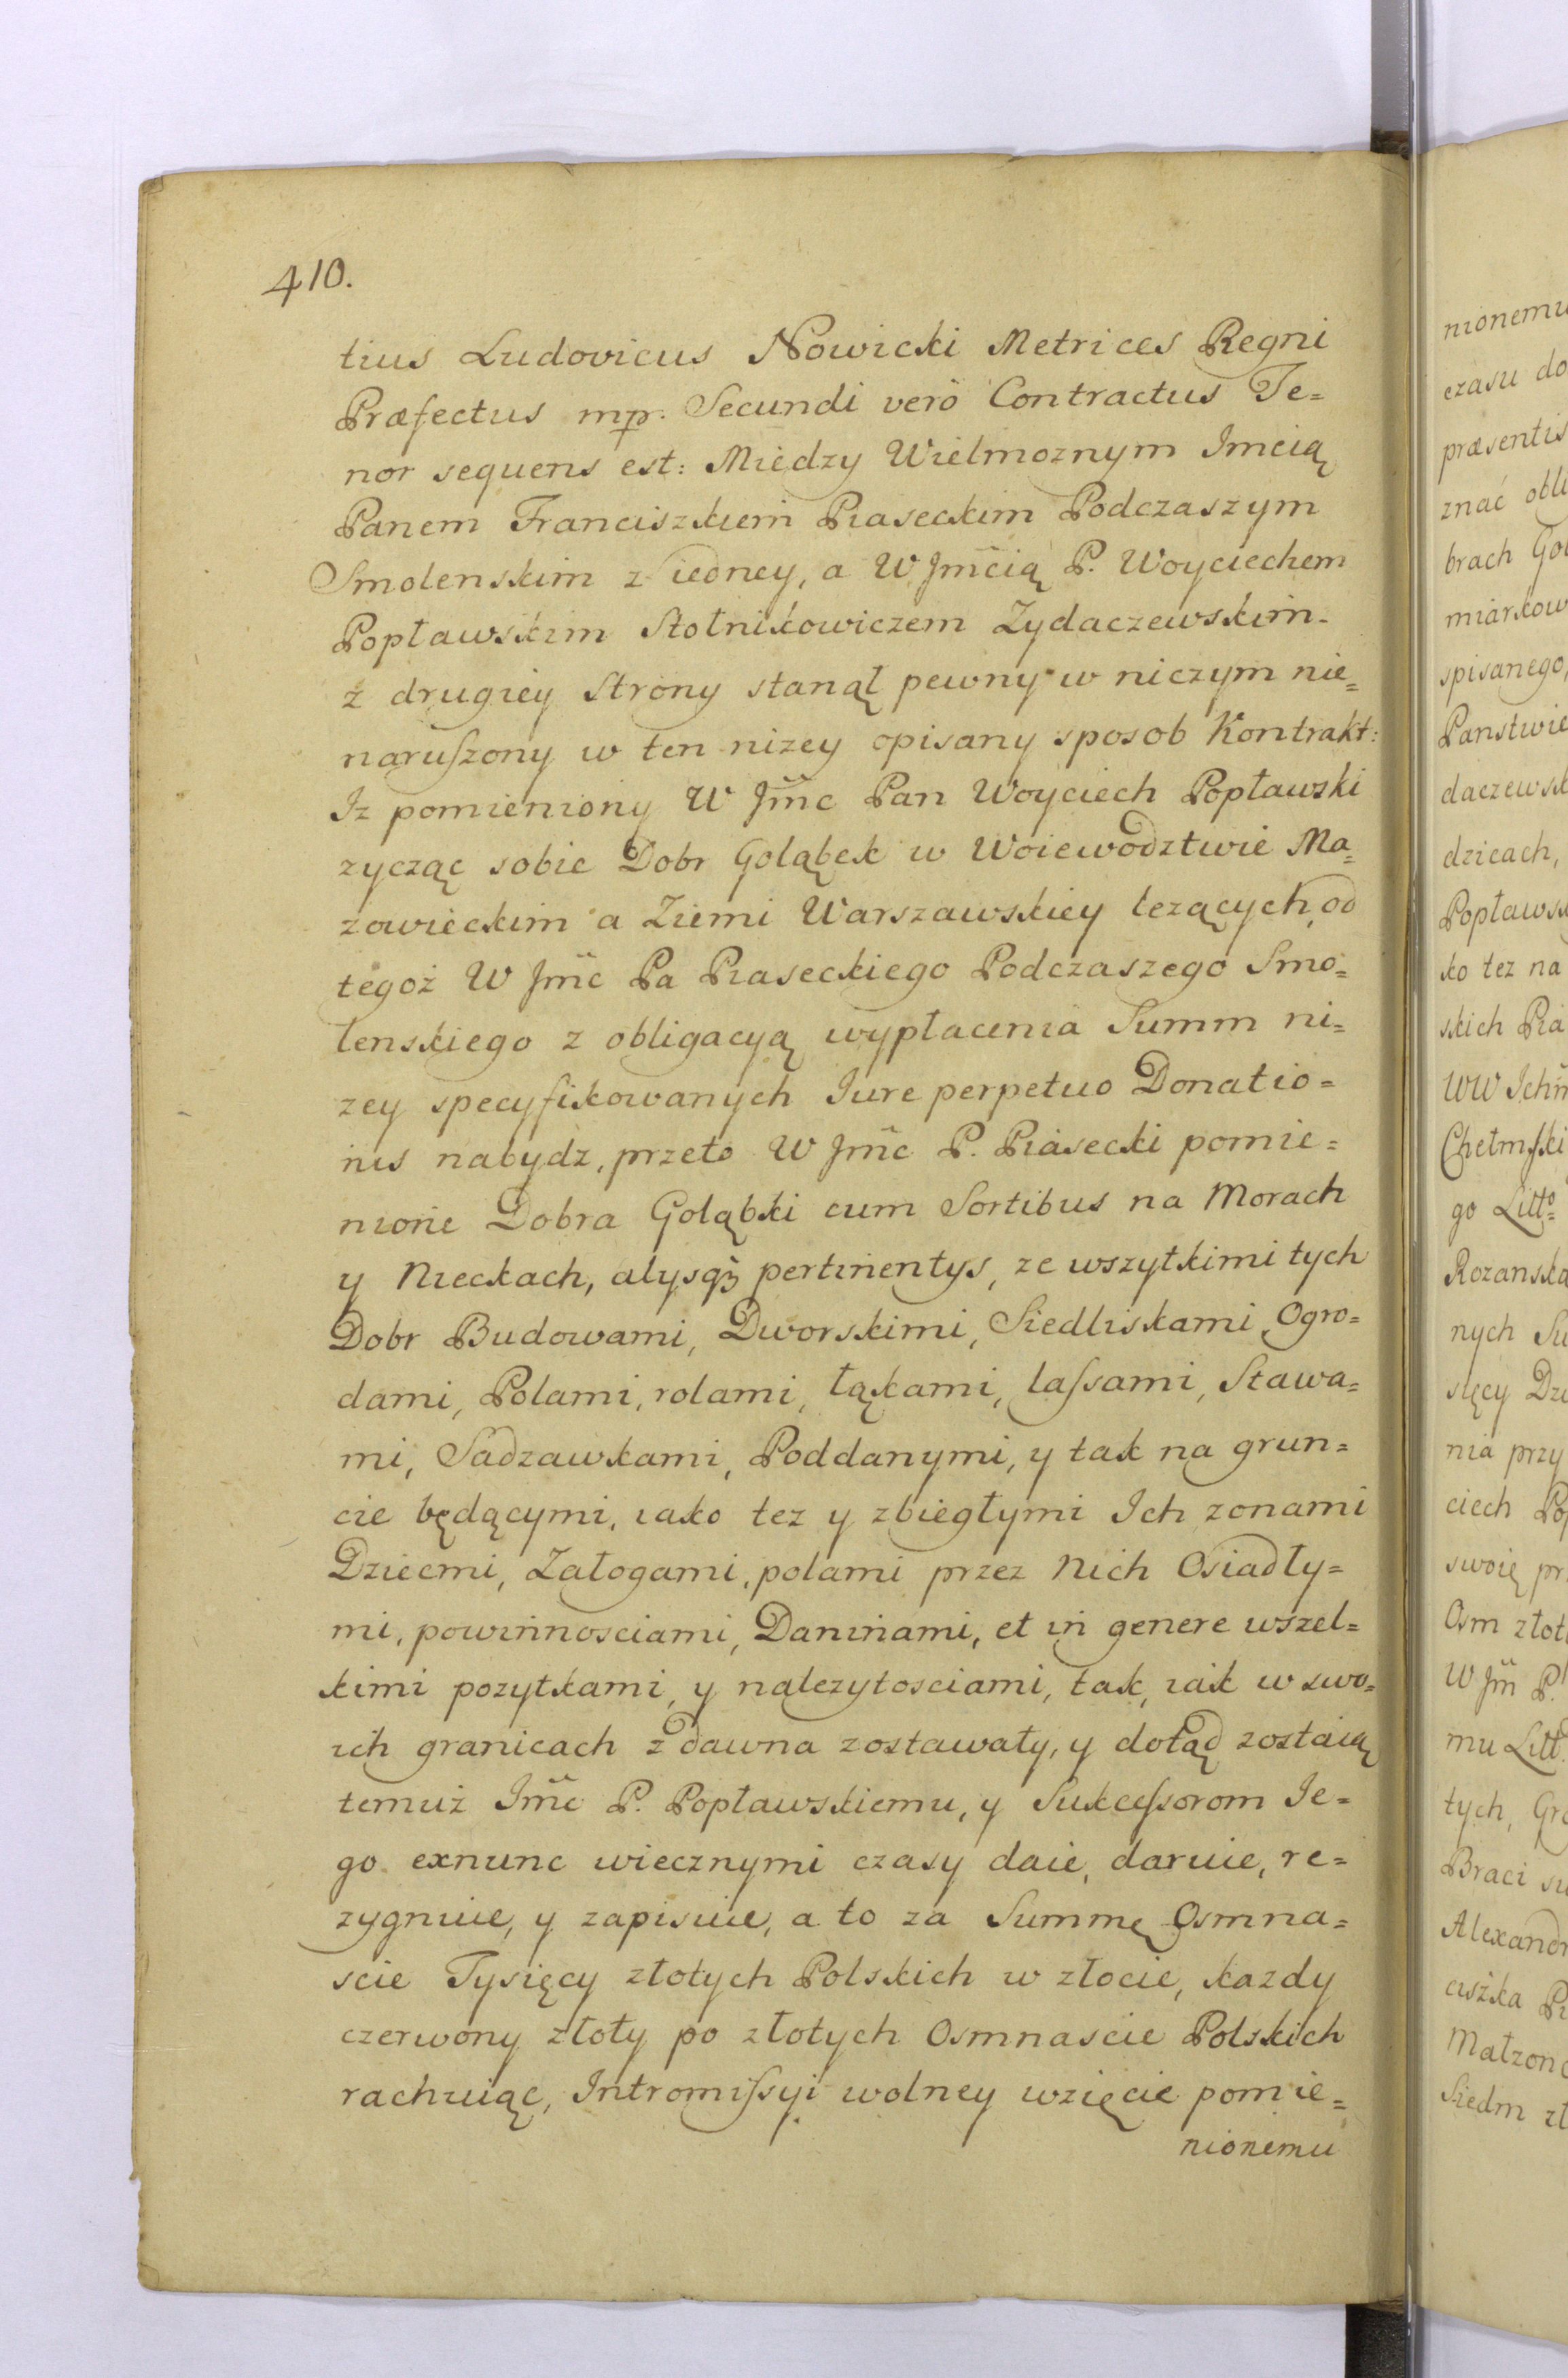 410.
tius Ludovicus Nowicki Metrices Regni
Præfectus mp. Secundi verò Contractus Te=
nor sequens est: Miedzy Wielmoznym Imcią
Panem Franciszkiem Piaseckim Podczaszym
Smolenskim z iedney, a W Jmcią P. Woyciechem
Popławskim Stolnikowiczem Zydaczewskim
z drugiey Strony stanął pewny w niczym nie=
naruſzony w ten nizey opisany sposob Kontrakt:
Iz pomieniony W Jmc Pan Woyciech Popławski
zycząc sobie Dobr Goląbek w Woiewodztwie Ma=
zowieckim a Ziemi Warszawskiey lezących, od
tegoż W Jmc Pa Piaseckiego Podczaszego Smo=
lenskiego z obligacyą wypłacenia Summ ni=
zey specyfikowanych Iure perpetuo Donatio=
nis nabydz, przeto W Jmc P. Piasecki pomie=
nione Dobra Goląbki cum Sortibus na Morach
y Nieckach, alysq3 pertinentys, ze wszytkimi tych
Dobr Budowami, Dworskimi, Siedliskami, Ogro=
dami, Polami, rolami, łąkami, laſsami, Stawa=
mi, Sadzawkami, Poddanymi, y tak na grun=
cie będącymi, iako tez y zbiegłymi Ich zonami
Dziecmi, Załogami, polami przez Nich Osiadły=
mi, powinnosciami, Daninami, et in genere wszel=
kimi pozytkami, y nalezytosciami, tak, iak w swo=
ich granicach z dawna zostawały, y dotąd zostaią
temuż Jmc P. Popławskiemu, y Sukceſsorom Ie=
go exnunc wiecznymi czasy daie, daruie, re=
zygnuie, y zapisuie, a to za Summę Osmna=
scie Tysięcy złotych Polskich w złocie, kazdy
czerwony złoty po złotych Osmnascie Polskich
rachuiąc, Intromiſsyi wolney wzięcie pomie=
nionemu
nionemu
czasu do
præsentis
znać obli
brach Goł
miarkow
spisanego,
Panstwie
daczewsk
dzicach,
Popławsk
ko tez na
skich Pia
WW Ichm
Chełmſki
go Litto=
Rozanska
nych Su
sięcy Dzi
nia przy
ciech Pop
swoię pr
Osm złot
W Jm P.
mu Litt
tych, Gro
Braci su
Alexandr
ciszka Pi
Małzon
Siedm zł